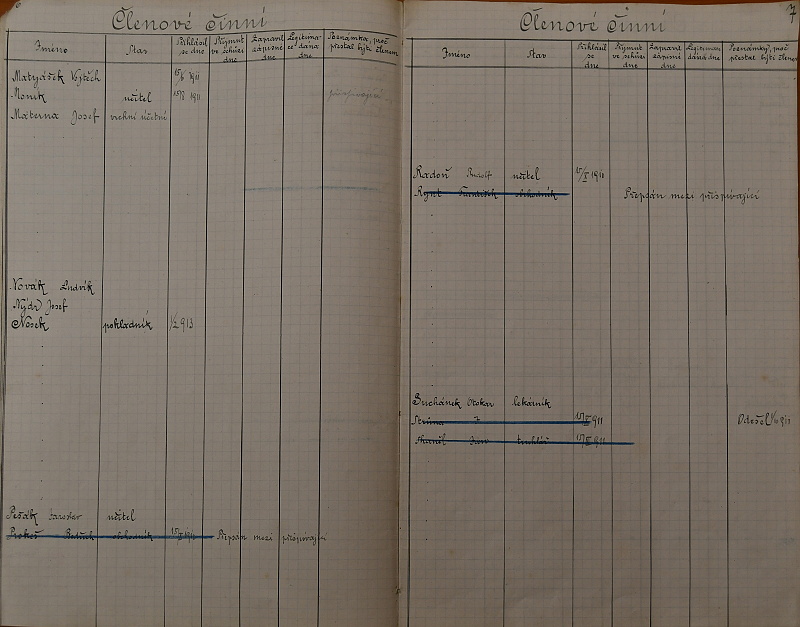 6
Členové činní
Jméno Stav Přihlásil se dne Přijmut ve schůzi dne Zapravil zápisné dne Legitimace dána dne Poznámka, proč přestal býti členem
Matyášek Vojtěch 15/6 1911
Moník učitel 15/8 1911
Materna Josef vrchní účetní
Novák Ludvík
Nýdr Josef
Nosek pokladník 1/2 913
Pešák Jaroslav učitel
Prokeš obchodník Přepsán mezi přispívající
7
Členové činní
Jméno Stav Přihlásil se dne Přijmut ve schůzi dne Zapravil zápisní dne Legitimaci dána dne Poznámky, proč přestal býti členem
Radoň Rudolf učitel 15/X 1911
František obchodník Přepsán mezi přispívající
Suchánek Otokar lékárník
911 Odešel
Jan truhlář 911